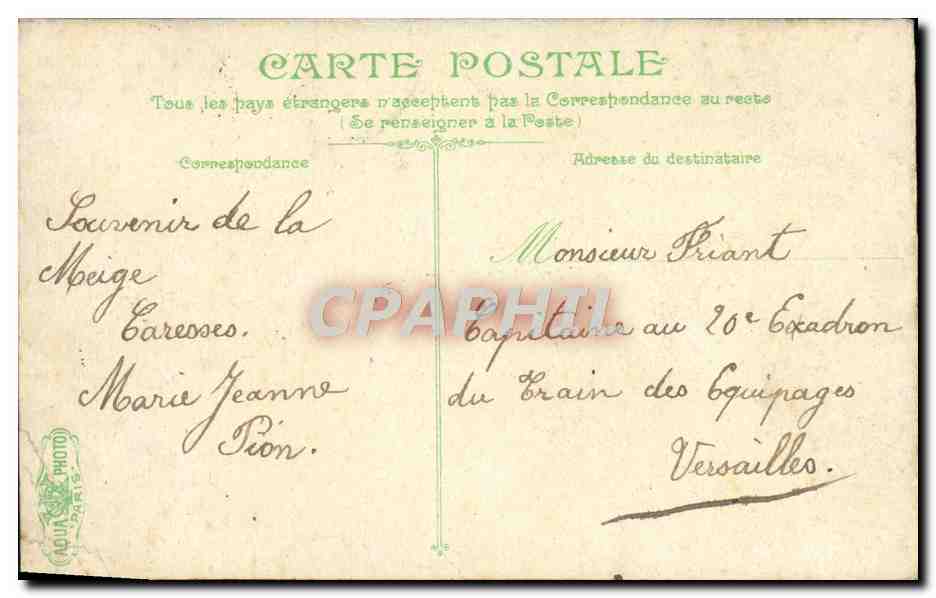 CARTE POSTALE
Tous les pays étrangers n'acceptent pas la Correspondance au recto
(Se renseigner à la Poste)
Correspondance
Adresse du destinataire
Souvenir de la
Meige
Caresses.
Marie Jeanne
Pion.
Monsieur Friant
Capitaine au 20e Exadron
du Train des Equipages
Versailles.
CPAPHIL
AQUA PHOTO
PARIS